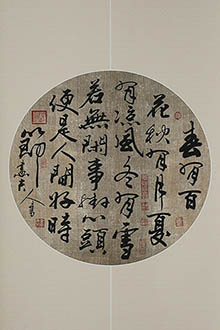 春有百
花秋有月夏
有凉風冬有雪
若無閑事掛心頭
便是人間好時
節